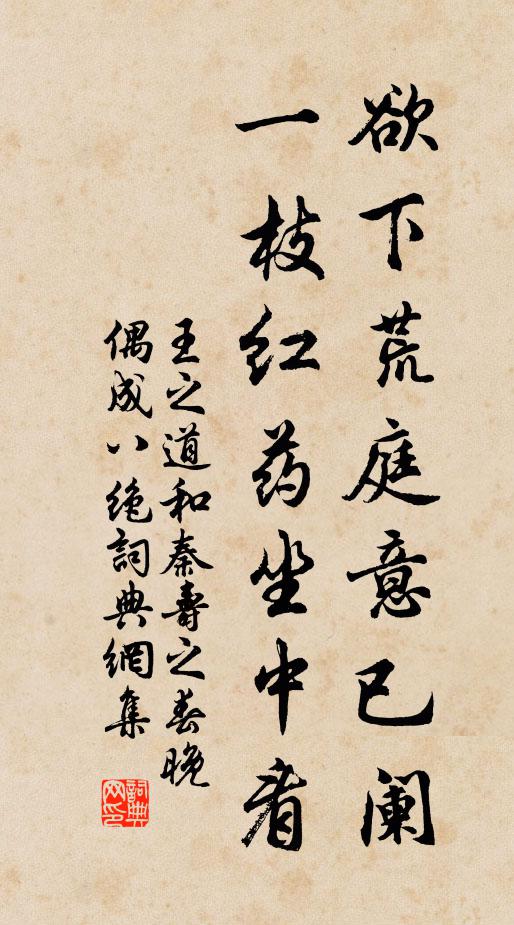 欲下荒庭意已阑
一枝红药坐中看
王之道和秦寿之春晚
偶成八绝詞典網集
詞典网印